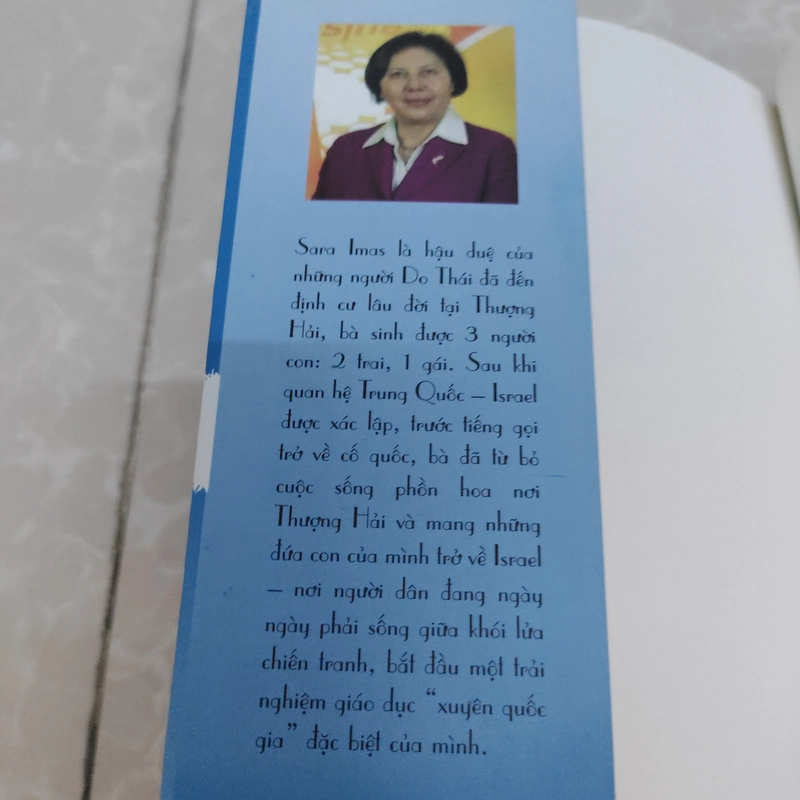 Sara Imas là hậu duệ của
những người Do Thái đã đến
định cư lâu đời tại Thượng
Hải, bà sinh được 3 người
con: 2 trai, 1 gái. Sau khi
quan hệ Trung Quốc – Israel
được xác lập, trước tiếng gọi
trở về cố quốc, bà đã từ bỏ
cuộc sống phồn hoa nơi
Thượng Hải và mang những
đứa con của mình trở về Israel
– nơi người dân đang ngày
ngày phải sống giữa khói lửa
chiến tranh, bắt đầu một trải
nghiệm giáo dục “xuyên quốc
gia” đặc biệt của mình.